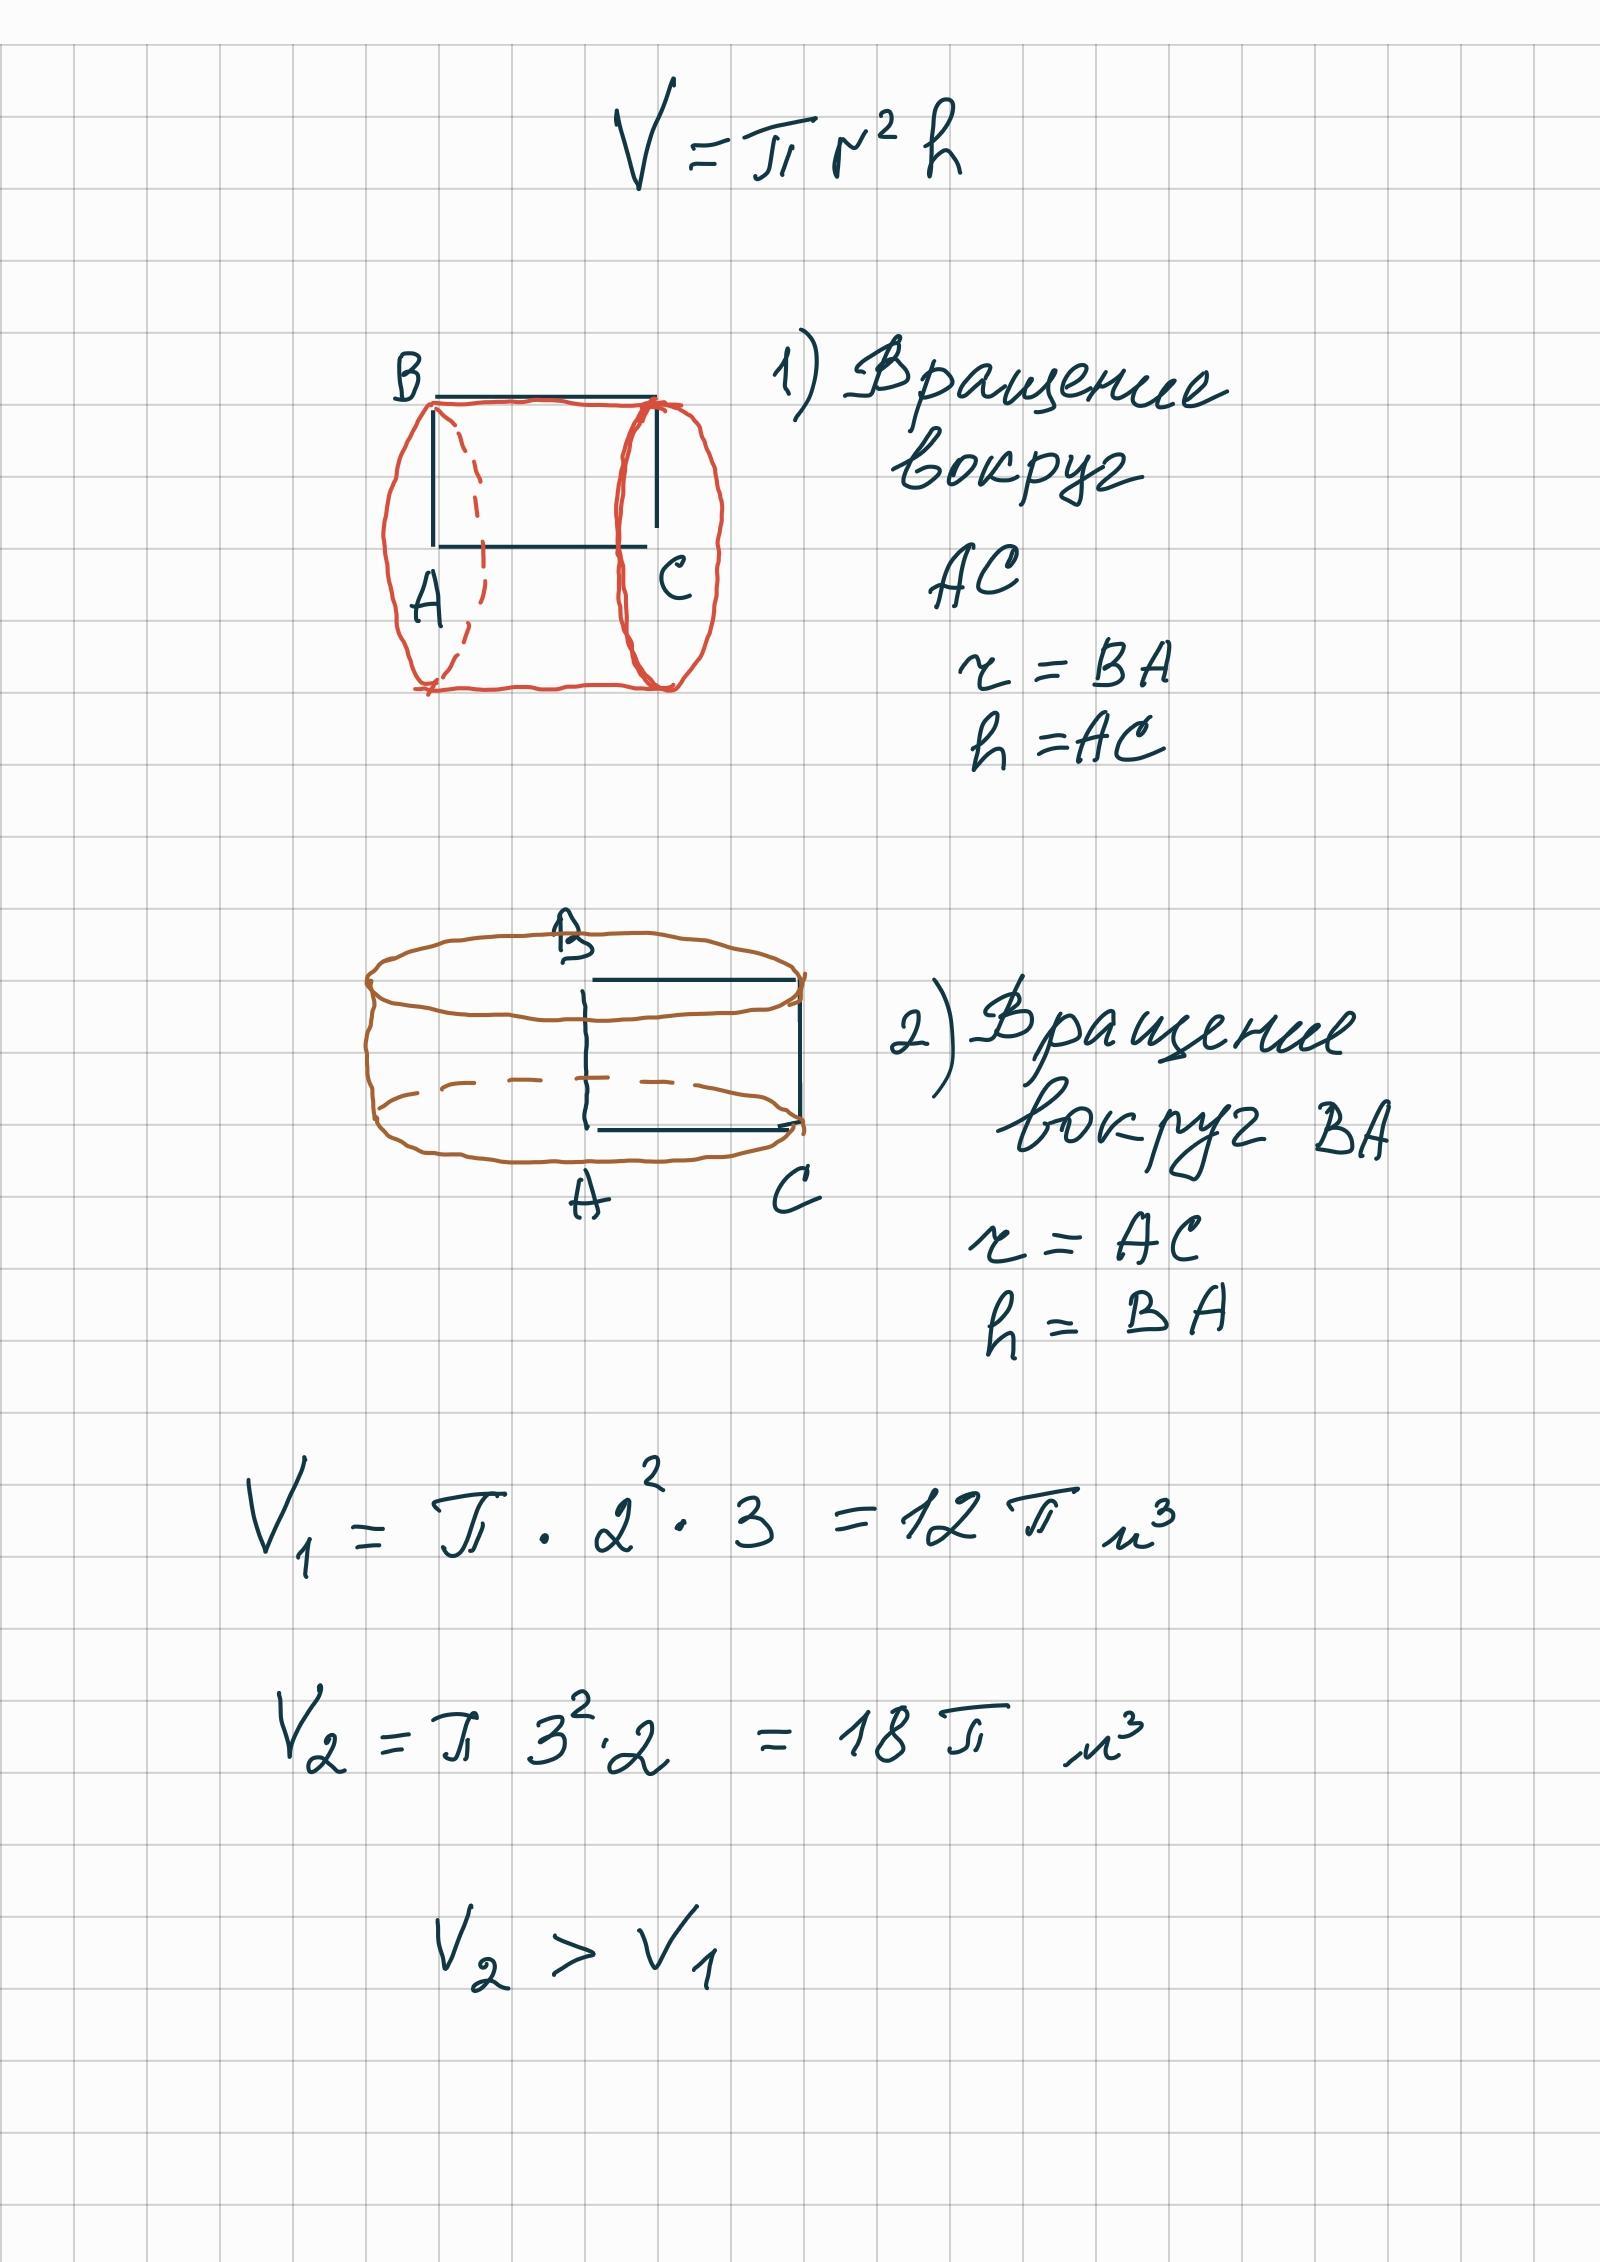 V = π r² h
B
A
C
1) Вращение
вокруг
AC
r = BA
h = AC
B
A
C
2) Вращение
вокруг BA
r = AC
h = BA
V₁ = π · 2² · 3 = 12 π м³
V₂ = π 3² · 2 = 18 π м³
V₂ > V₁